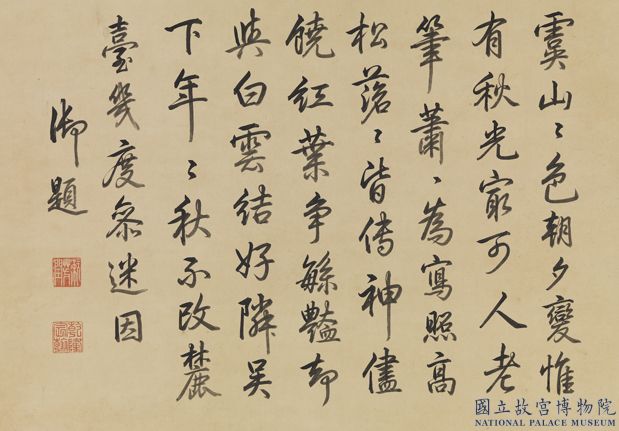 虞山〻色朝夕變惟
有秋光㝡可人老
筆蕭〻為寫照高
松落〻皆傳神儘
饒紅葉爭緐豔却
與白雲結好隣吳
下年〻秋不改麓
臺幾度叅迷因
御題
乾隆宸翰
國立故宮博物院
NATIONAL PALACE MUSEUM